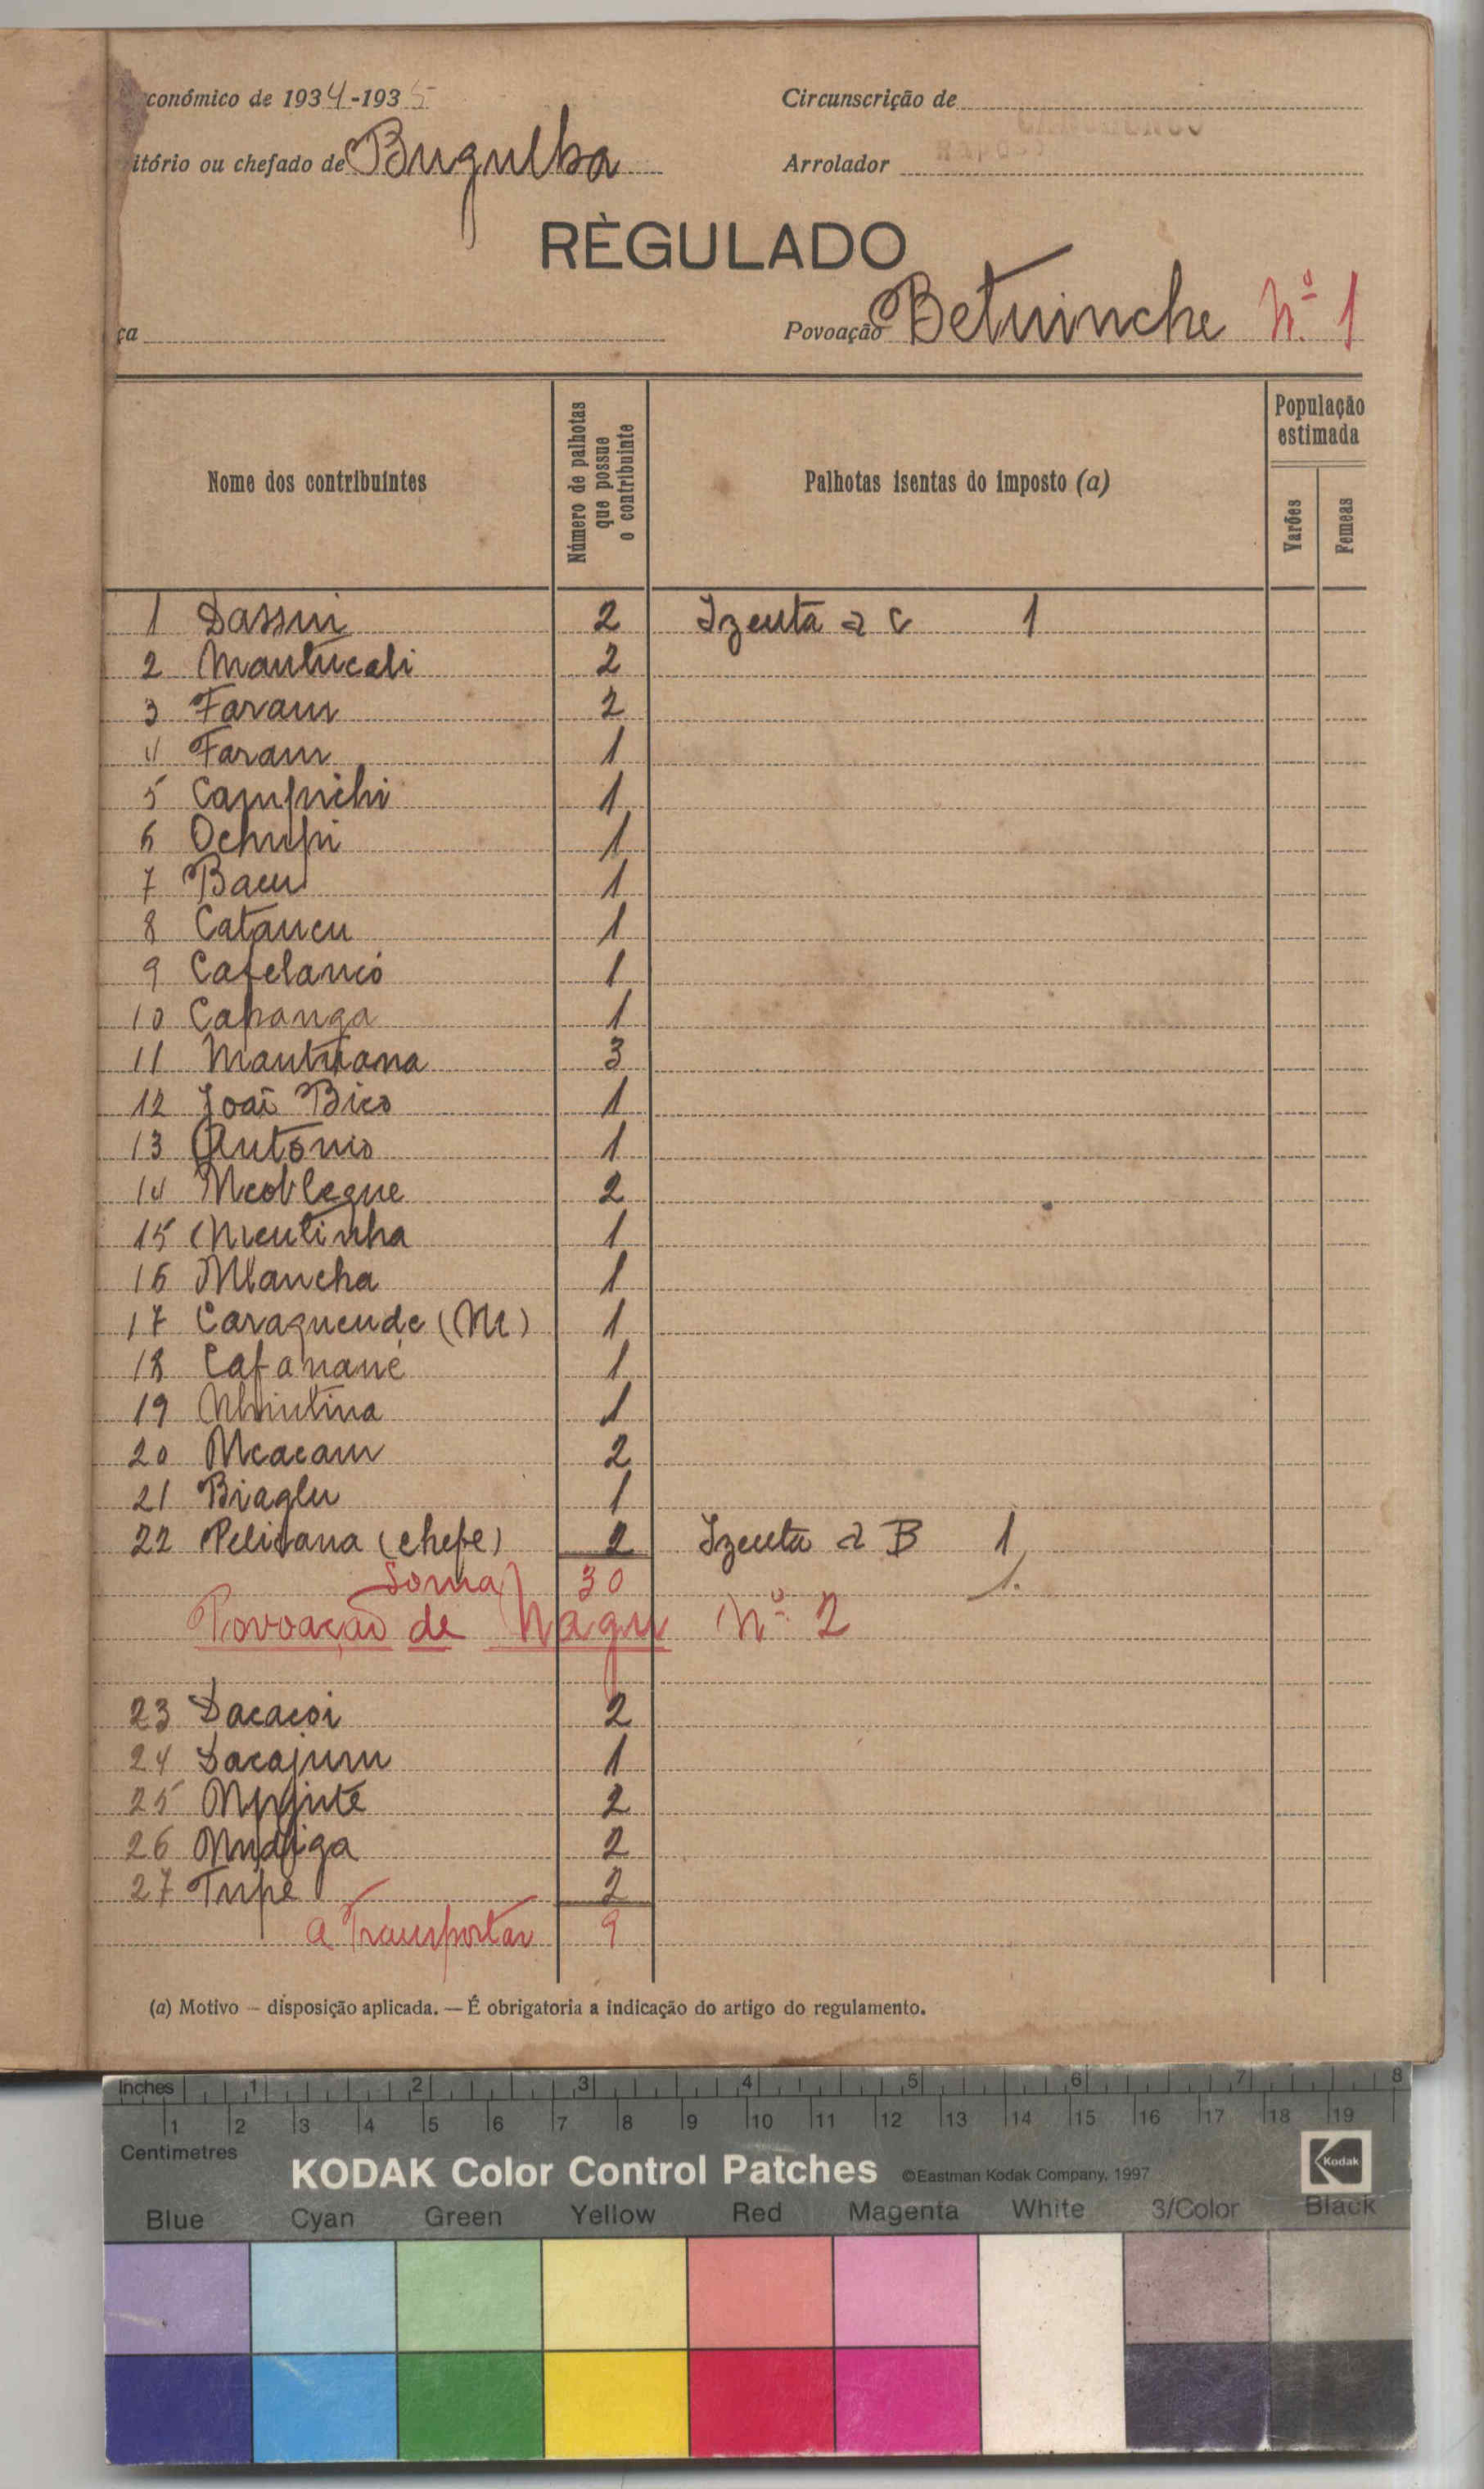 conómico de 1934-1935 Circunscrição de
itório ou chefado de Bugulha Arrolador
RÈGULADO
ça Povoação Betuinche Nº 1
Nome dos contribuintes Número de palhotas que possue o contribuinte Palhotas isentas do imposto (a) População estimada
Varões Femeas
1 Dassui 2 Izenta a C 1
2 Mantucali 2
3 Faram 2
4 Faram 1
5 Campichi 1
6 Ochupi 1
7 Bacu 1
8 Catancu 1
9 Cafelancó 1
10 Capanga 1
11 Mantriana 3
12 João Bico 1
13 António 1
14 Mcoblegue 2
15 Mentinha 1
16 Mlancha 1
17 Caraquende (M) 1
18 Cafanané 1
19 Nhintina 1
20 Mcacam 2
21 Biaglu 1
22 Pelisana (chefe) 2 Izenta a B 1
Soma 30 1.
Povoação de Nagu Nº 2
23 Dacacoi 2
24 Dacajum 1
25 2
26 2
27 Tupe 2
A Transportar 9
(a) Motivo — disposição aplicada. — É obrigatoria a indicação do artigo do regulamento.
Inches 1 2 3 4 5 6 7 8
1 2 3 4 5 6 7 8 9 10 11 12 13 14 15 16 17 18 19
Centimetres
KODAK Color Control Patches ©Eastman Kodak Company, 1997 Kodak
Blue Cyan Green Yellow Red Magenta White 3/Color Black